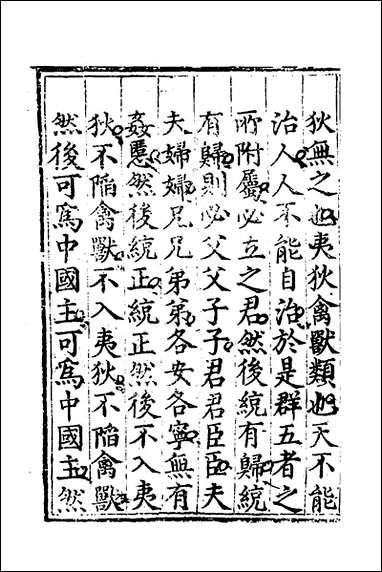 狄無之也夷狄禽獸類也天不能
治人人不能自治於是群五者之
所附屬必立之君然後統有歸統
有歸則必父父子子君君臣臣夫
夫婦婦兄兄弟弟各安各寧無有
姦慝然後統正統正然後不入夷
狄不陷禽獸不入夷狄不陷禽獸
然後可爲中國主可爲中國主然